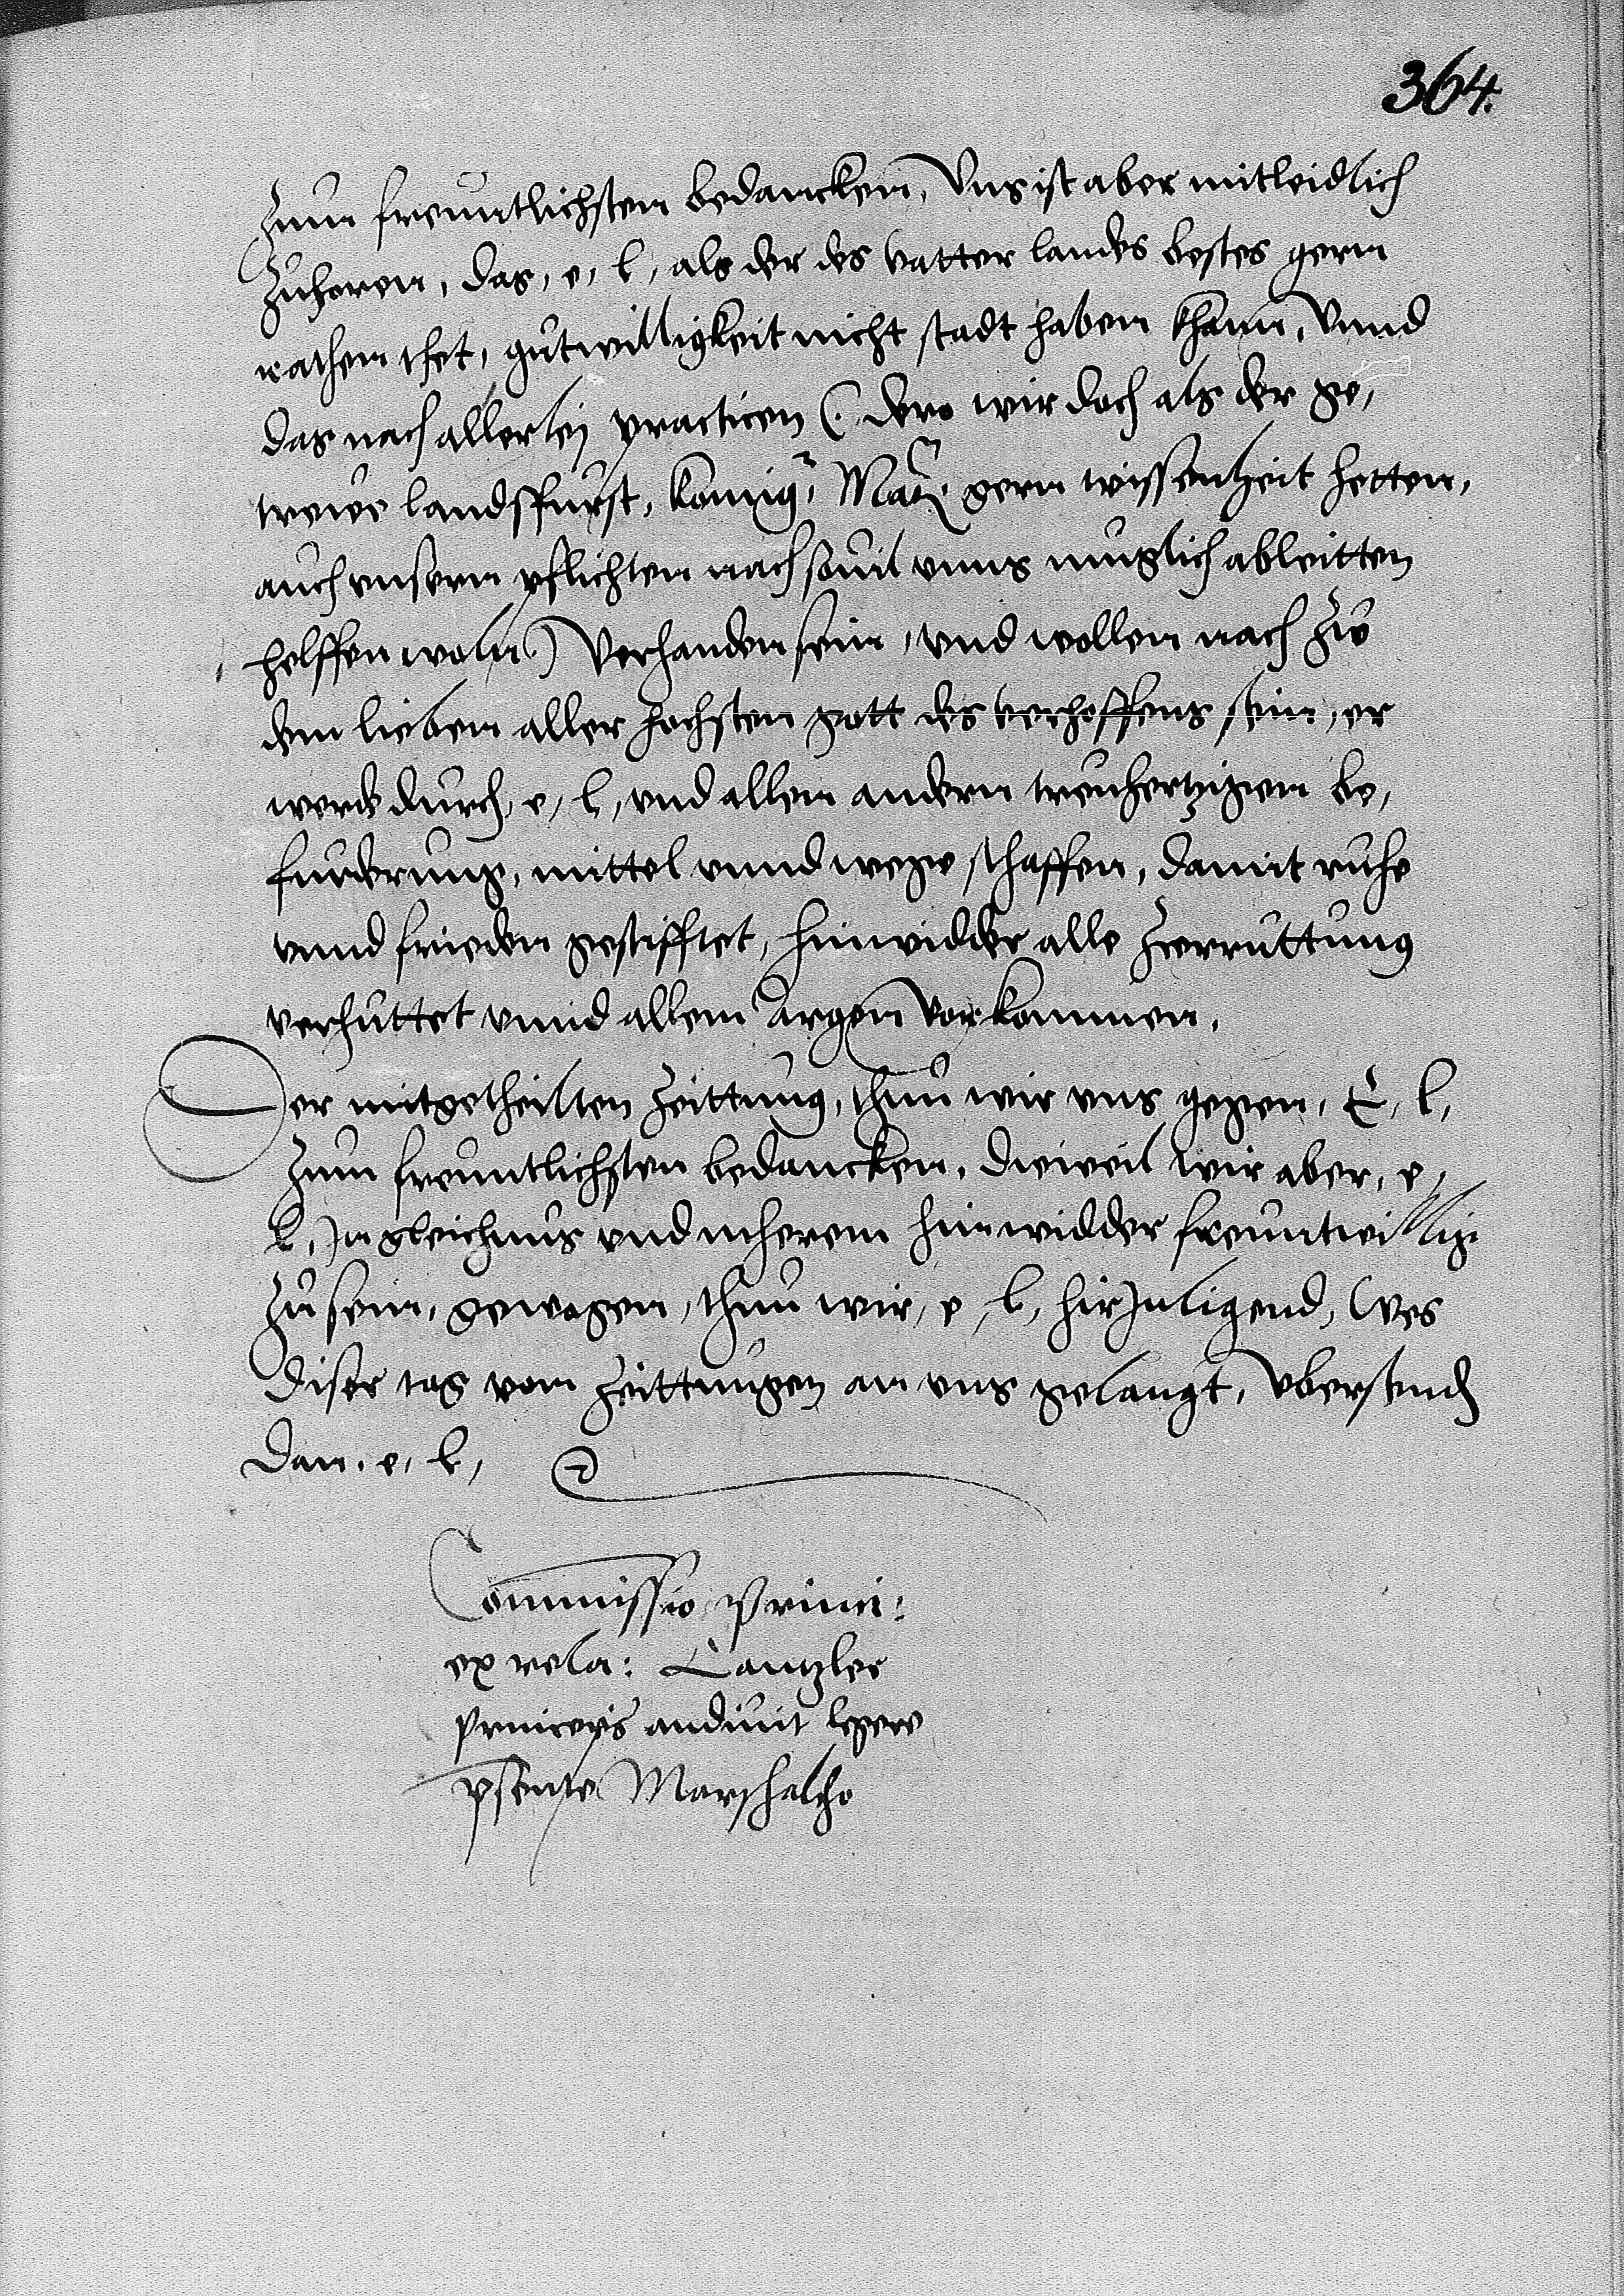 364.
zum freuntlichsten bedancken, Vns ist aber mitleidlich
zuhoren, das, e, l, als der des vatter landes bestes gern
rathen thet, gutwilligkeit nicht stadt haben khann, Vnnd
das noch allerley practicen (: dero wir doch als der ge,
trewe landsfurst, konig: Matt: gern wissenheit hetten,
auch unsern pflichten nach souil vnns muglich ableitten
helffen woln:) Verhanden sein, vnd wollen noch zw
dem lieben aller hochsten gott des verhoffens sein, er
werde durch, e, l, vnd allen andern treuhertzigen be,
furderung, mittel vnnd wege schaffen, damit ruhe
vnnd frieden gestifftet, hinwidder alle Zerruttung
verhuttet vnnd allem Argen vorkommen.
Der mitgetheilten Zeittung, thun wir vns gegen, E, l,
zum freuntlichsten bedancken, dieweil wir aber, e,
l, In gleichnus vnd meherem hinwidder freuntwillig
zu sein, gewogen, thun wir, e, l, hirInligend, Wes
diser tag von Zeittungen an vns gelangt, vbersend
Dan. e, l,
Commissio Princi:
ex rela: Cantzler
princeps audiuit legere
psente Marschalcho